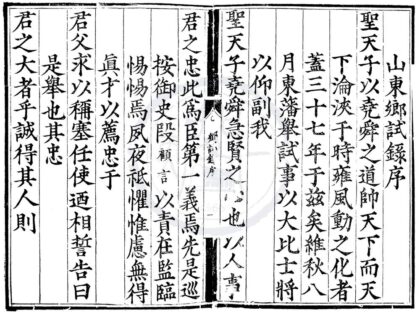 山東鄉試錄序
聖天子以堯舜之道帥天下而天
下淪浹于時雍風動之化者
蓋三十七年于茲矣維秋八
月東藩舉試事以大比士將
以仰副我
聖天子堯舜急賢之心也以人事
君之忠此為臣第一義焉先是巡
按御史段顧言以責在監臨
惕惕焉夙夜祗懼惟慮無得
真才以薦忠于
君父求以稱塞任使迺相誓告曰
是舉也其忠
君之大者乎誠得其人則